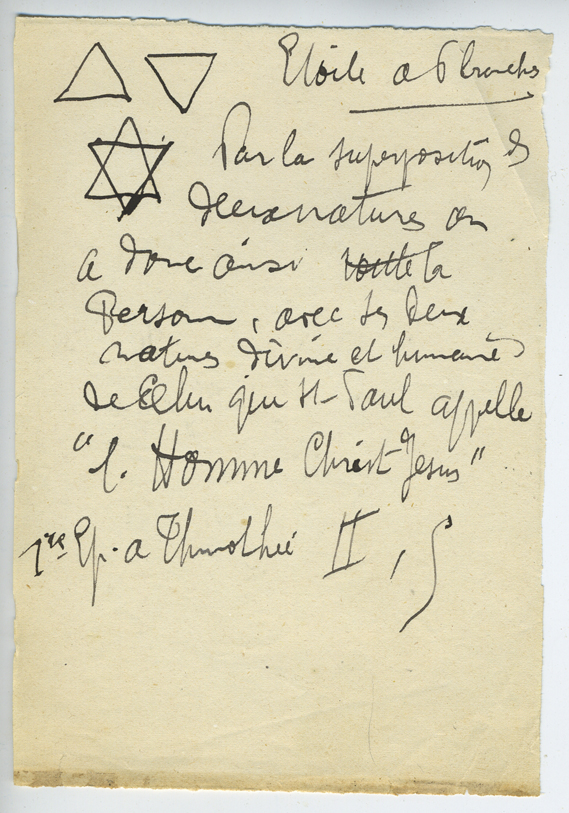 Etoile a 6 branches
Par la superposition des
deux natures on
a donc ainsi toute la
Personne, avec ses deux
natures divine et humaine
de Celui que St-Paul appelle
"l'Homme Christ Jesus"
1re Ep. a Thimothée II, 5